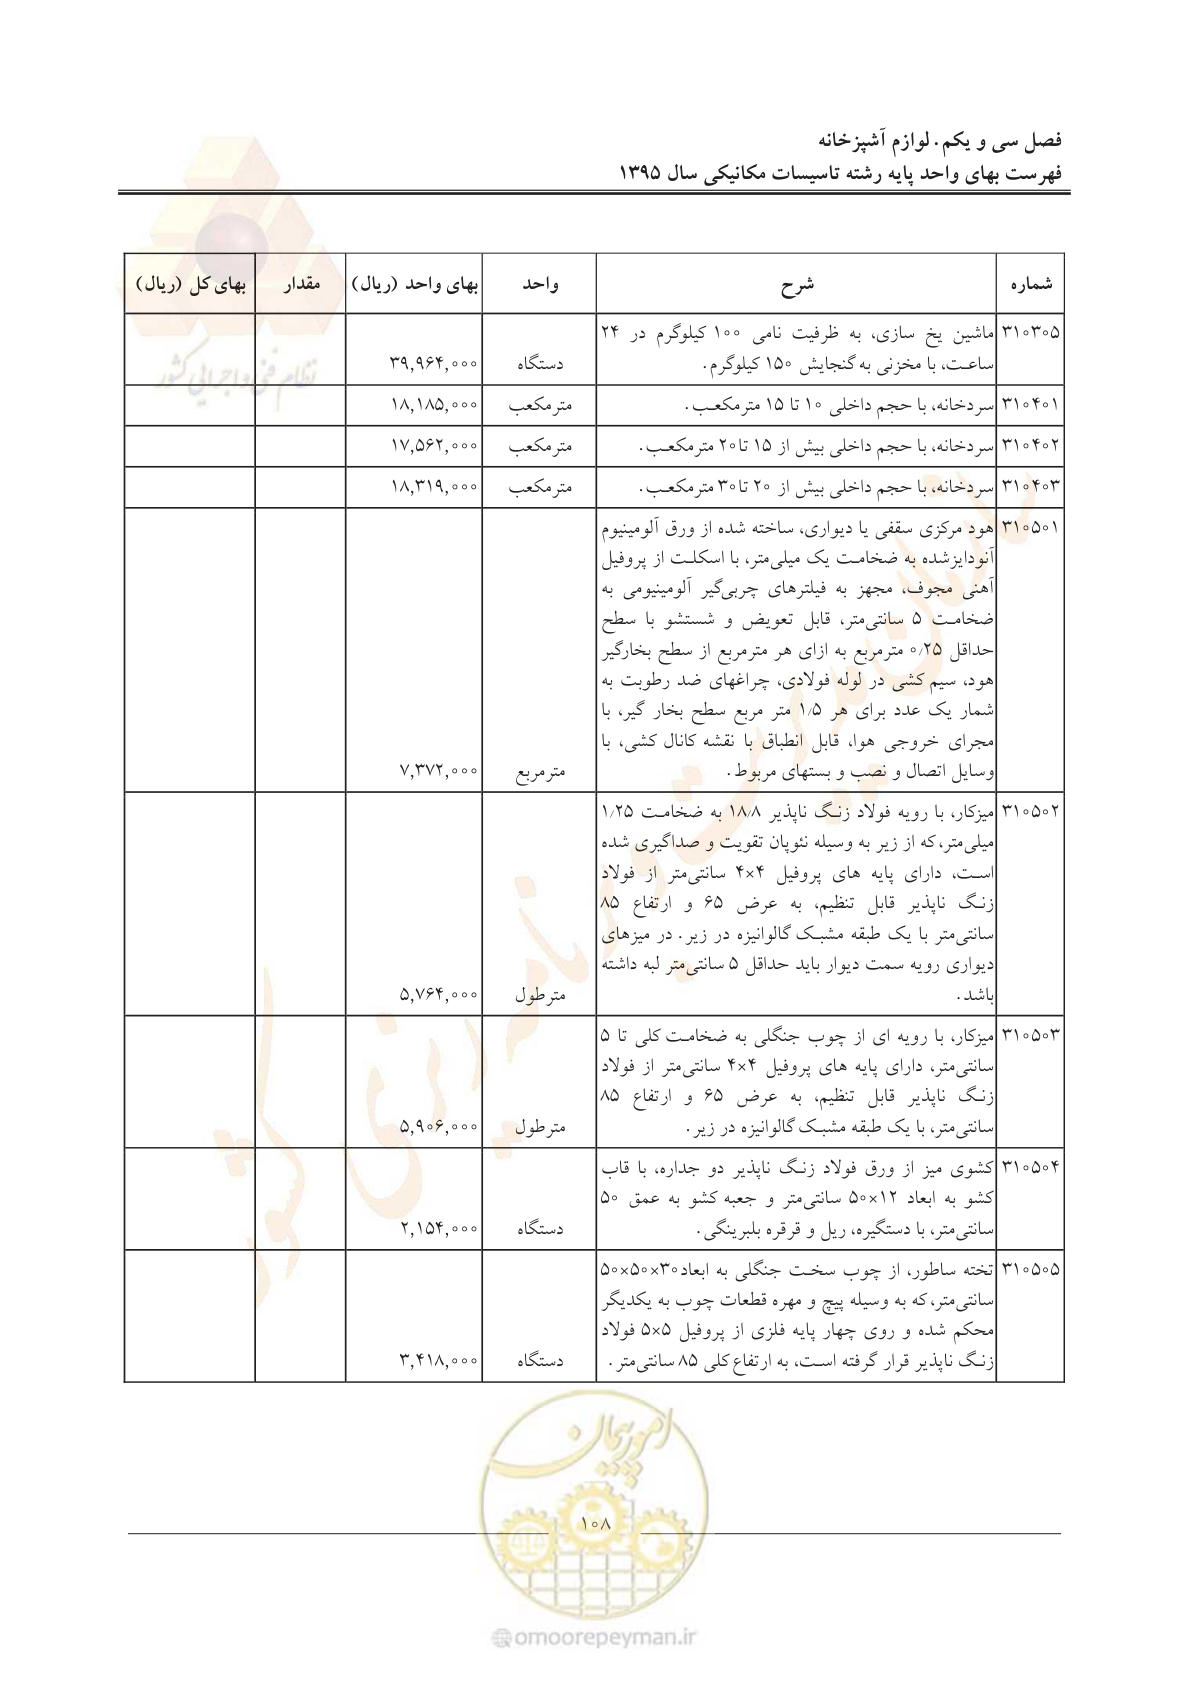 فصل سی و یکم. لوازم آشپزخانه
فهرست بهای واحد پایه رشته تاسیسات مکانیکی سال ۱۳۹۵
شماره شرح واحد بهای واحد (ریال) مقدار بهای کل (ریال)
۳۱۰۳۰۵ ماشین یخ سازی، به ظرفیت نامی ۱۰۰ کیلوگرم در ۲۴
ساعت، با مخزنی به گنجایش ۱۵۰ کیلوگرم. دستگاه ۳۹,۹۶۴,۰۰۰
۳۱۰۴۰۱ سردخانه، با حجم داخلی ۱۰ تا ۱۵ مترمکعب. مترمکعب ۱۸,۱۸۵,۰۰۰
۳۱۰۴۰۲ سردخانه، با حجم داخلی بیش از ۱۵ تا۲۰ مترمکعب. مترمکعب ۱۷,۵۶۲,۰۰۰
۳۱۰۴۰۳ سردخانه، با حجم داخلی بیش از ۲۰ تا۳۰ مترمکعب. مترمکعب ۱۸,۳۱۹,۰۰۰
۳۱۰۵۰۱ هود مرکزی سقفی یا دیواری، ساخته شده از ورق آلومینیوم
آنودایزشده به ضخامت یک میلی‌متر، با اسکلت از پروفیل
آهنی مجوف، مجهز به فیلترهای چربی‌گیر آلومینیومی به
ضخامت ۵ سانتی‌متر، قابل تعویض و شستشو با سطح
حداقل ۰٫۲۵ مترمربع به ازای هر مترمربع از سطح بخارگیر
هود، سیم کشی در لوله فولادی، چراغهای ضد رطوبت به
شمار یک عدد برای هر ۱٫۵ متر مربع سطح بخار گیر، با
مجرای خروجی هوا، قابل انطباق با نقشه کانال کشی، با
وسایل اتصال و نصب و بستهای مربوط. مترمربع ۷,۳۷۲,۰۰۰
۳۱۰۵۰۲ میزکار، با رویه فولاد زنگ ناپذیر ۱۸٫۸ به ضخامت ۱٫۲۵
میلی‌متر،که از زیر به وسیله نئوپان تقویت و صداگیری شده
است، دارای پایه های پروفیل ۴×۴ سانتی‌متر از فولاد
زنگ ناپذیر قابل تنظیم، به عرض ۶۵ و ارتفاع ۸۵
سانتی‌متر با یک طبقه مشبک گالوانیزه در زیر. در میزهای
دیواری رویه سمت دیوار باید حداقل ۵ سانتی‌متر لبه داشته
باشد. مترطول ۵,۷۶۴,۰۰۰
۳۱۰۵۰۳ میزکار، با رویه ای از چوب جنگلی به ضخامت کلی تا ۵
سانتی‌متر، دارای پایه های پروفیل ۴×۴ سانتی‌متر از فولاد
زنگ ناپذیر قابل تنظیم، به عرض ۶۵ و ارتفاع ۸۵
سانتی‌متر، با یک طبقه مشبک گالوانیزه در زیر. مترطول ۵,۹۰۶,۰۰۰
۳۱۰۵۰۴ کشوی میز از ورق فولاد زنگ ناپذیر دو جداره، با قاب
کشو به ابعاد ۱۲×۵۰ سانتی‌متر و جعبه کشو به عمق ۵۰
سانتی‌متر، با دستگیره، ریل و قرقره بلبرینگی. دستگاه ۲,۱۵۴,۰۰۰
۳۱۰۵۰۵ تخته ساطور، از چوب سخت جنگلی به ابعاد۳۰×۵۰×۵۰
سانتی‌متر،که به وسیله پیچ و مهره قطعات چوب به یکدیگر
محکم شده و روی چهار پایه فلزی از پروفیل ۵×۵ فولاد
زنگ ناپذیر قرار گرفته است، به ارتفاع کلی ۸۵ سانتی‌متر. دستگاه ۳,۴۱۸,۰۰۰
نظام فنی و اجرایی کشور
سازمان مدیریت و برنامه ریزی کشور
امور پیمان
۱۰۸
@omoorepeyman.ir